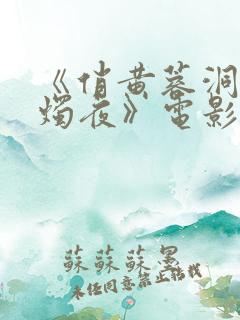 《俏黄蓉洞
烛夜》電影
蘇蘇蘇墨
未经同意禁止转载